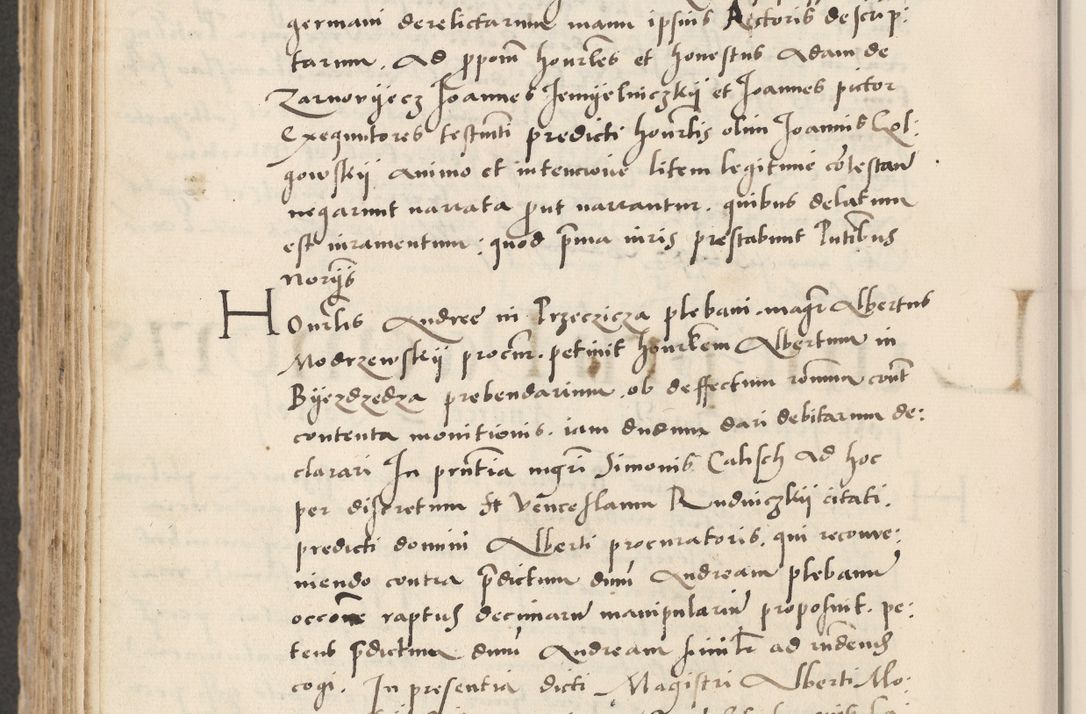 germani derelictarum manu ipsius Rectoris descrip:
tarum. Ad ppoem honrles et honestus Adam de
Zarnowyecz Joannes Jemyelniczkij et Joannes pictor
Exequutores testmti predicti honrlis olim Joannis Kxl:
gowskij animo et intencione litem legitime cotestan
negarunt narrata put narrantur. quibus delatum
est iuramentum: quod pma iuris prestabunt Putibus
Norijs
HOnrlis Andree in Przeczicza plebani. magr Albertus
Modrzewskij procur. petiuit honrlem Albertum in
Byezdzedza prebendarium. ob deffectum romum cont
contenta monitionis. iam dudum dari debitarum de:
clarari In pntia mgri Simonis Calisch ad hoc
per discretum St Venceslaum Rudniczkij citati.
predicti domini Alberti procuratoris. qui reconue:
niendo contra pdictum dnu Andream plebanu
occone raptus decimaru manipulariu proposuit. pe:
tens pdictum dnu Andream simir ad rndend
cogi. In presentia dicti Magistri Alberti Mo: